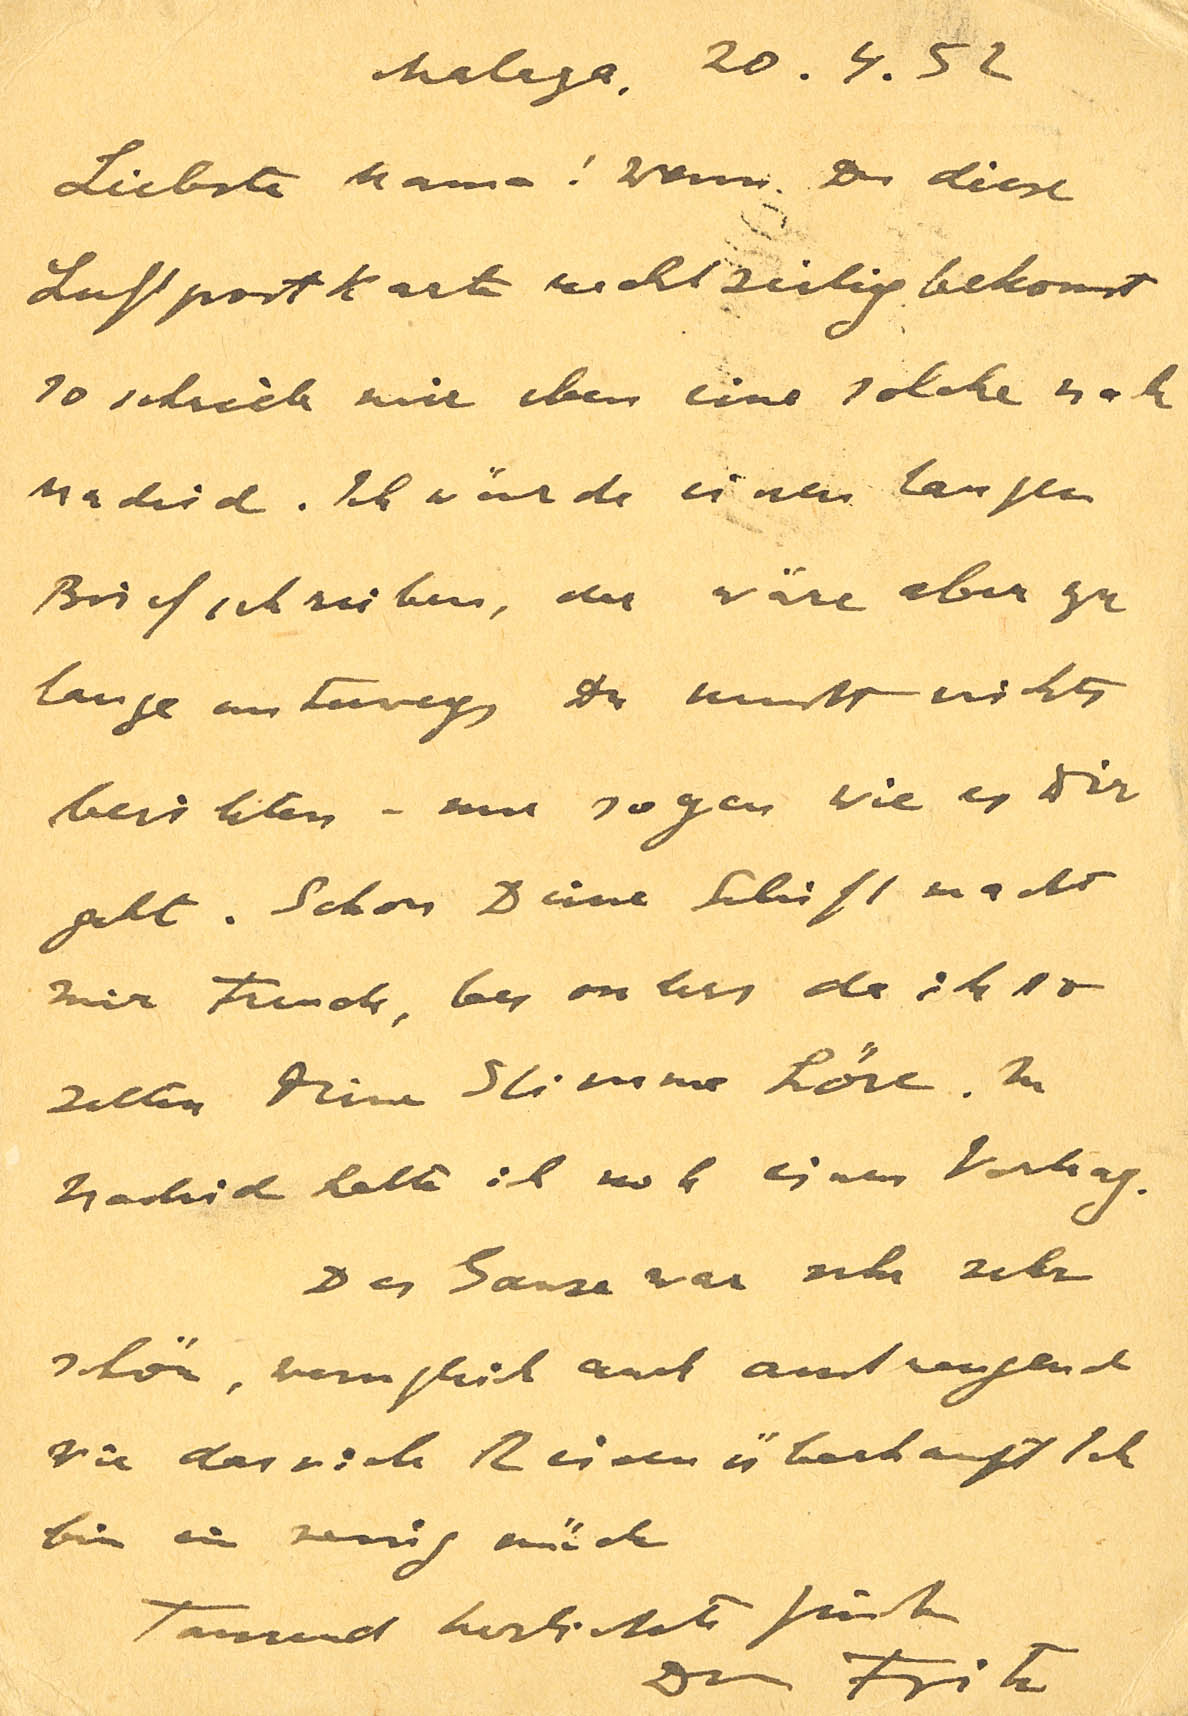 Malaga, 20.4.52
Liebste Mama! Wenn Du diese
Luftpostkarte rechtzeitig bekomst
so schreib mir eben eine solche nach
Madrid. Ich würde einen langen
Brief schreiben, der wäre aber zu
lange unterwegs Du musst nichts
berichten - nur sagen wie es Dir
geht. Schon Deine Schrift macht
mir Freude, besonders da ich so
selten Deine Stimme höre. In
Madrid halte ich noch einen Vortrag.
Das Ganze war sehr sehr
schön, wenngleich auch anstrengend
wie das viele Reisen überhaupt Ich
bin ein wenig müde
Tausend herzlichste Grüsse
Dein Fritz